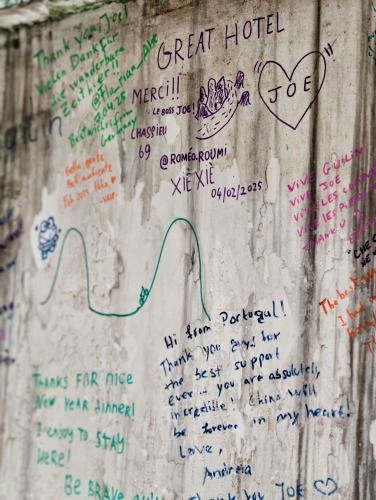 Thank you Joe!
Vielen Dank für
die wunderbare
Zeit hier!!
Germany
GREAT HOTEL
MERCI!!
LE BOSS JOE!
CHASPIEU
69
@ROMÉO.ROUMI
XIÈ XIÈ
04/02/2025
JOE
Bella gente
Bell'ambiente
VIVE GUILIN
VIVE JOE
VIVE LES
VIVE LES
THANK U
The best
I
Hi from Portugal!
Thank you guys for
the best support
ever... you are absolutely
incredible! China will
be forever in my heart!
Love,
Andreia
THANKS FOR NICE
NEW YEAR DINNER!
I ENJOY TO STAY
HERE!
BE BRAVE
Thank you JOE